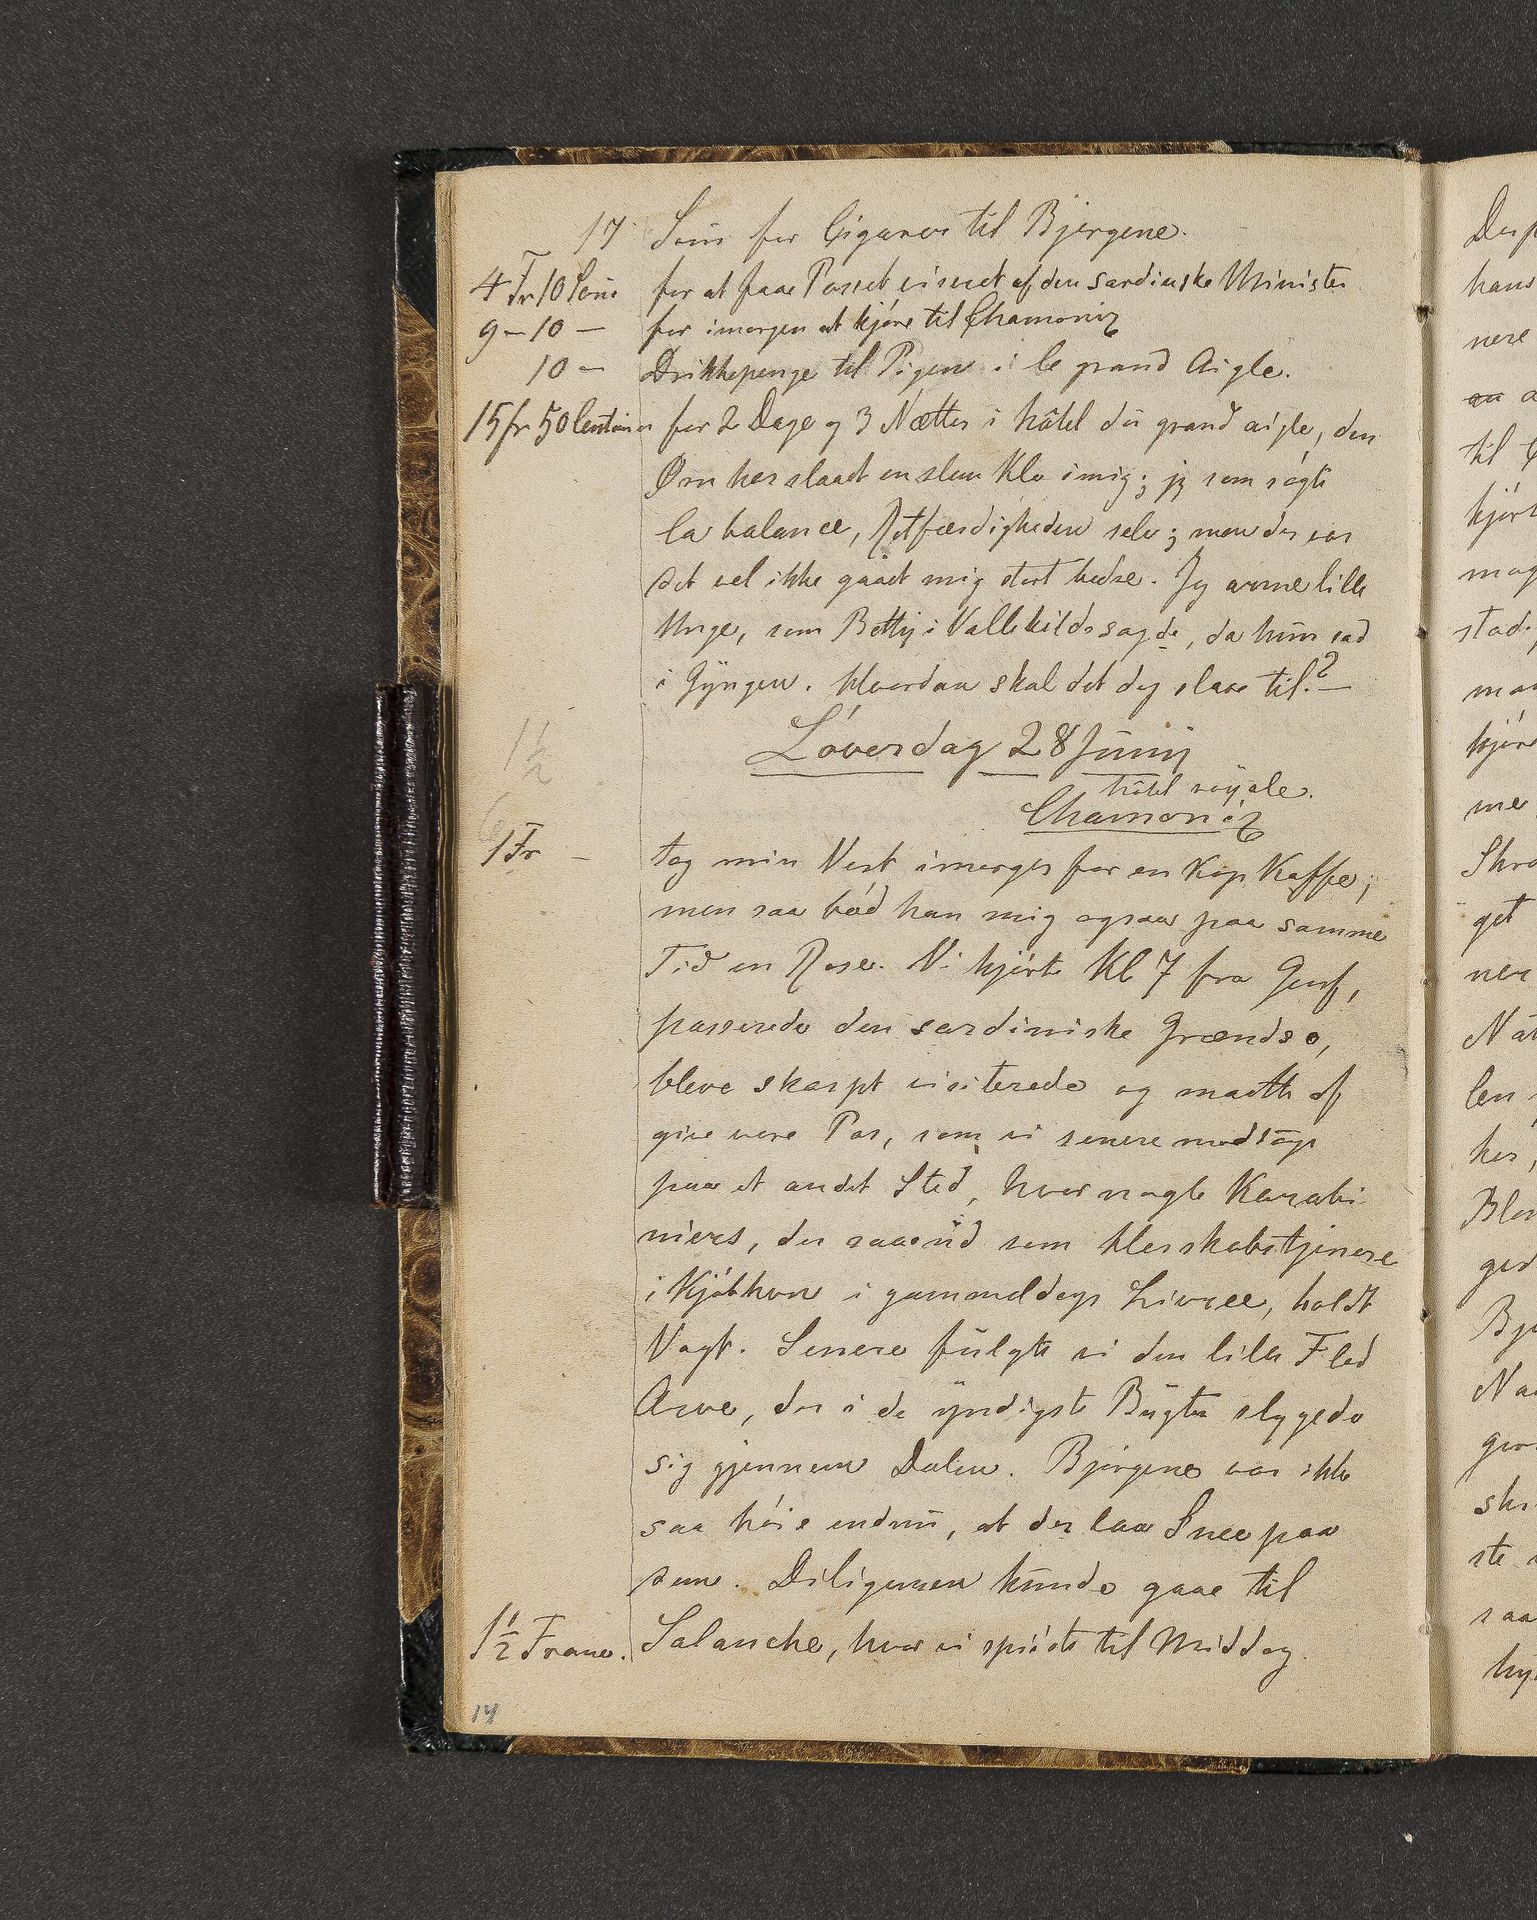 17 Sou for Cigarer til Bjergene.
4 Fr 10 Sou for at faae Passet viseret af den sardinske Minister
9 – 10 – for imorgen at kjøre til Chamoniz
10 – Drikkepenge til Pigen i le grand Aigle.
15 fr 50 Centimer for 2 Dage og 3 Nætter i hôtel du grand aigle, den
Ørn har slaaet en slem Klo i mig; jeg som søgte
la balance, Retfærdigheden selv; men der var
det vel ikke gaaet mig stort bedre. Jeg arme lille
Unge, som Betty i Vallekilde sagde, da hun sad
i Gyngen. Hvordan skal det dog slaae til.? –
Løverdag 28 Junij
hôtel royale.
Chamoniz
1½
6
1 Fr – tog min Vert imorges for en Kop Kaffe;
men saa bød han mig ogsaa paa samme
Tid en Rose. Vi kjørte Kl 7 fra Genf,
passerede den sardiniske Grændse,
bleve skarpt visiterede og maatte af
give vore Pas, som vi senere modtoge
paa et andet Sted, hvor nogle Karabi-
niers, der saae ud som Herskabstjenere
i Kjøbhvn i gammeldags Livree, holdt
Vagt. Senere fulgte vi den lille Flod
Arve, der i de yndigste Bugter slyngede
sig gjennem Dalen. Bjergene var ikke
saa høie endnu, at der laae Snee paa
dem. Diligensen kunde gaae til
1½ Franc. Salanche, hvor vi spiiste til Middag.
14